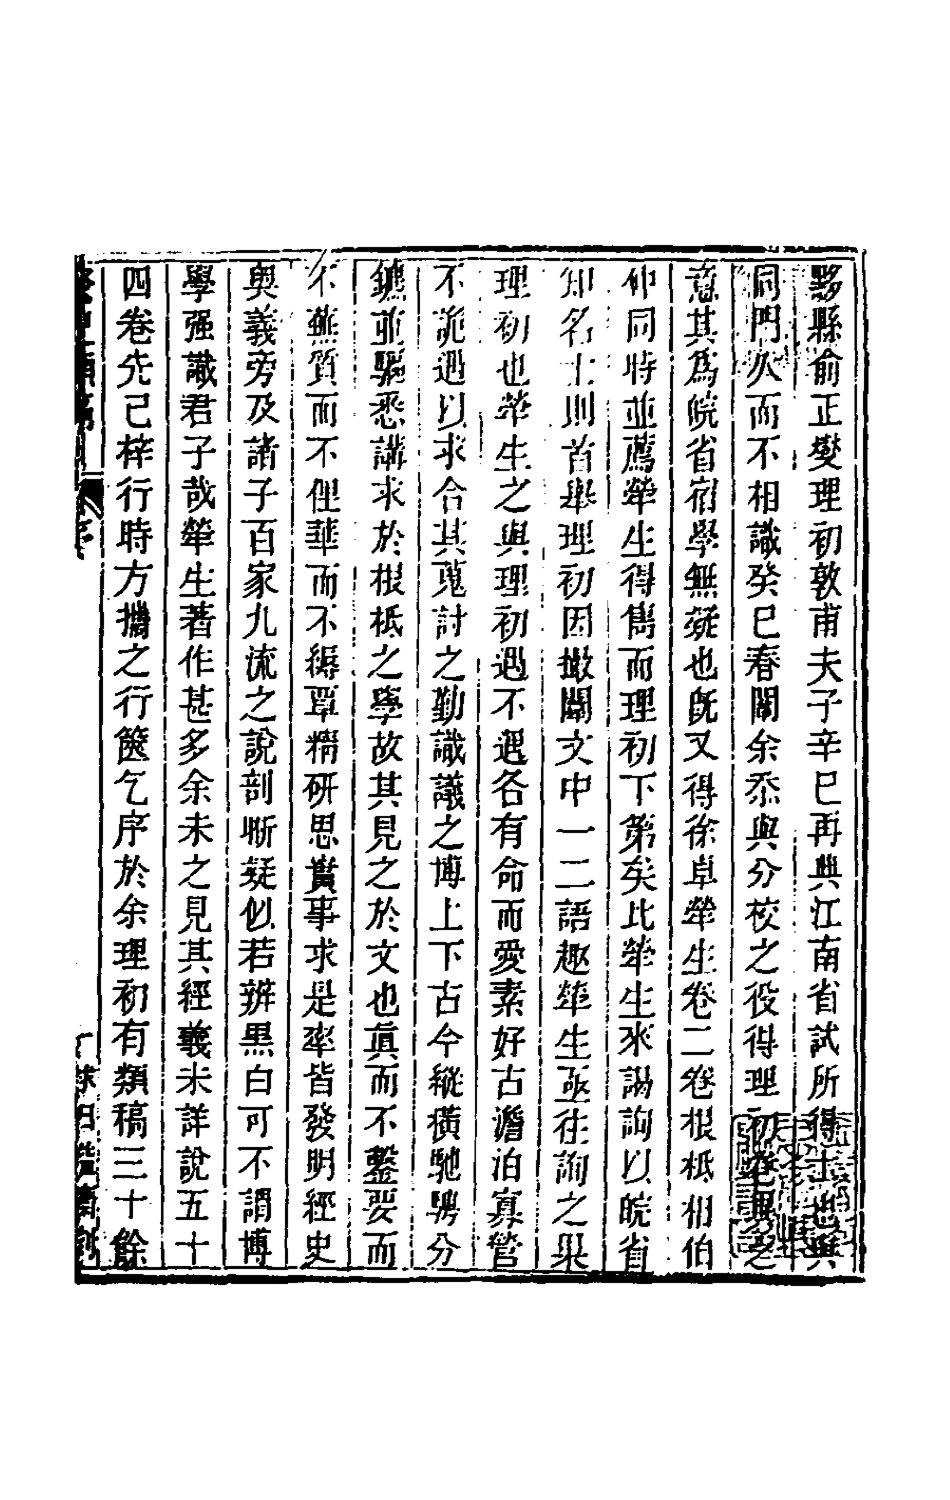 黟縣俞正燮理初敦甫夫子辛巳再典江南省試所得士也與
同門久而不相識癸巳春闈余忝與分校之役得理初卷異之
意其爲皖省宿學無疑也旣又得徐卓犖生卷二卷根柢相伯
仲同時並薦犖生得雋而理初下第矣比犖生來謁詢以皖省
知名士則首舉理初因撤闈文中一二語趣犖生亟往詢之果
理初也犖生之與理初遇不遇各有命而愛素好古澹泊寡營
不詭遇以求合其蒐討之勤識議之博上下古今縱橫馳騁分
鑣並驅悉講求於根柢之學故其見之於文也眞而不鑿要而
不蕪質而不俚華而不縟覃精研思實事求是率皆發明經史
奥義旁及諸子百家九流之說剖晰疑似若辨黒白可不謂博
學强識君子哉犖生著作甚多余未之見其經義未詳說五十
四卷先已梓行時方攜之行篋乞序於余理初有類稿三十餘
癸巳類稿 序
一 求日益齋刻